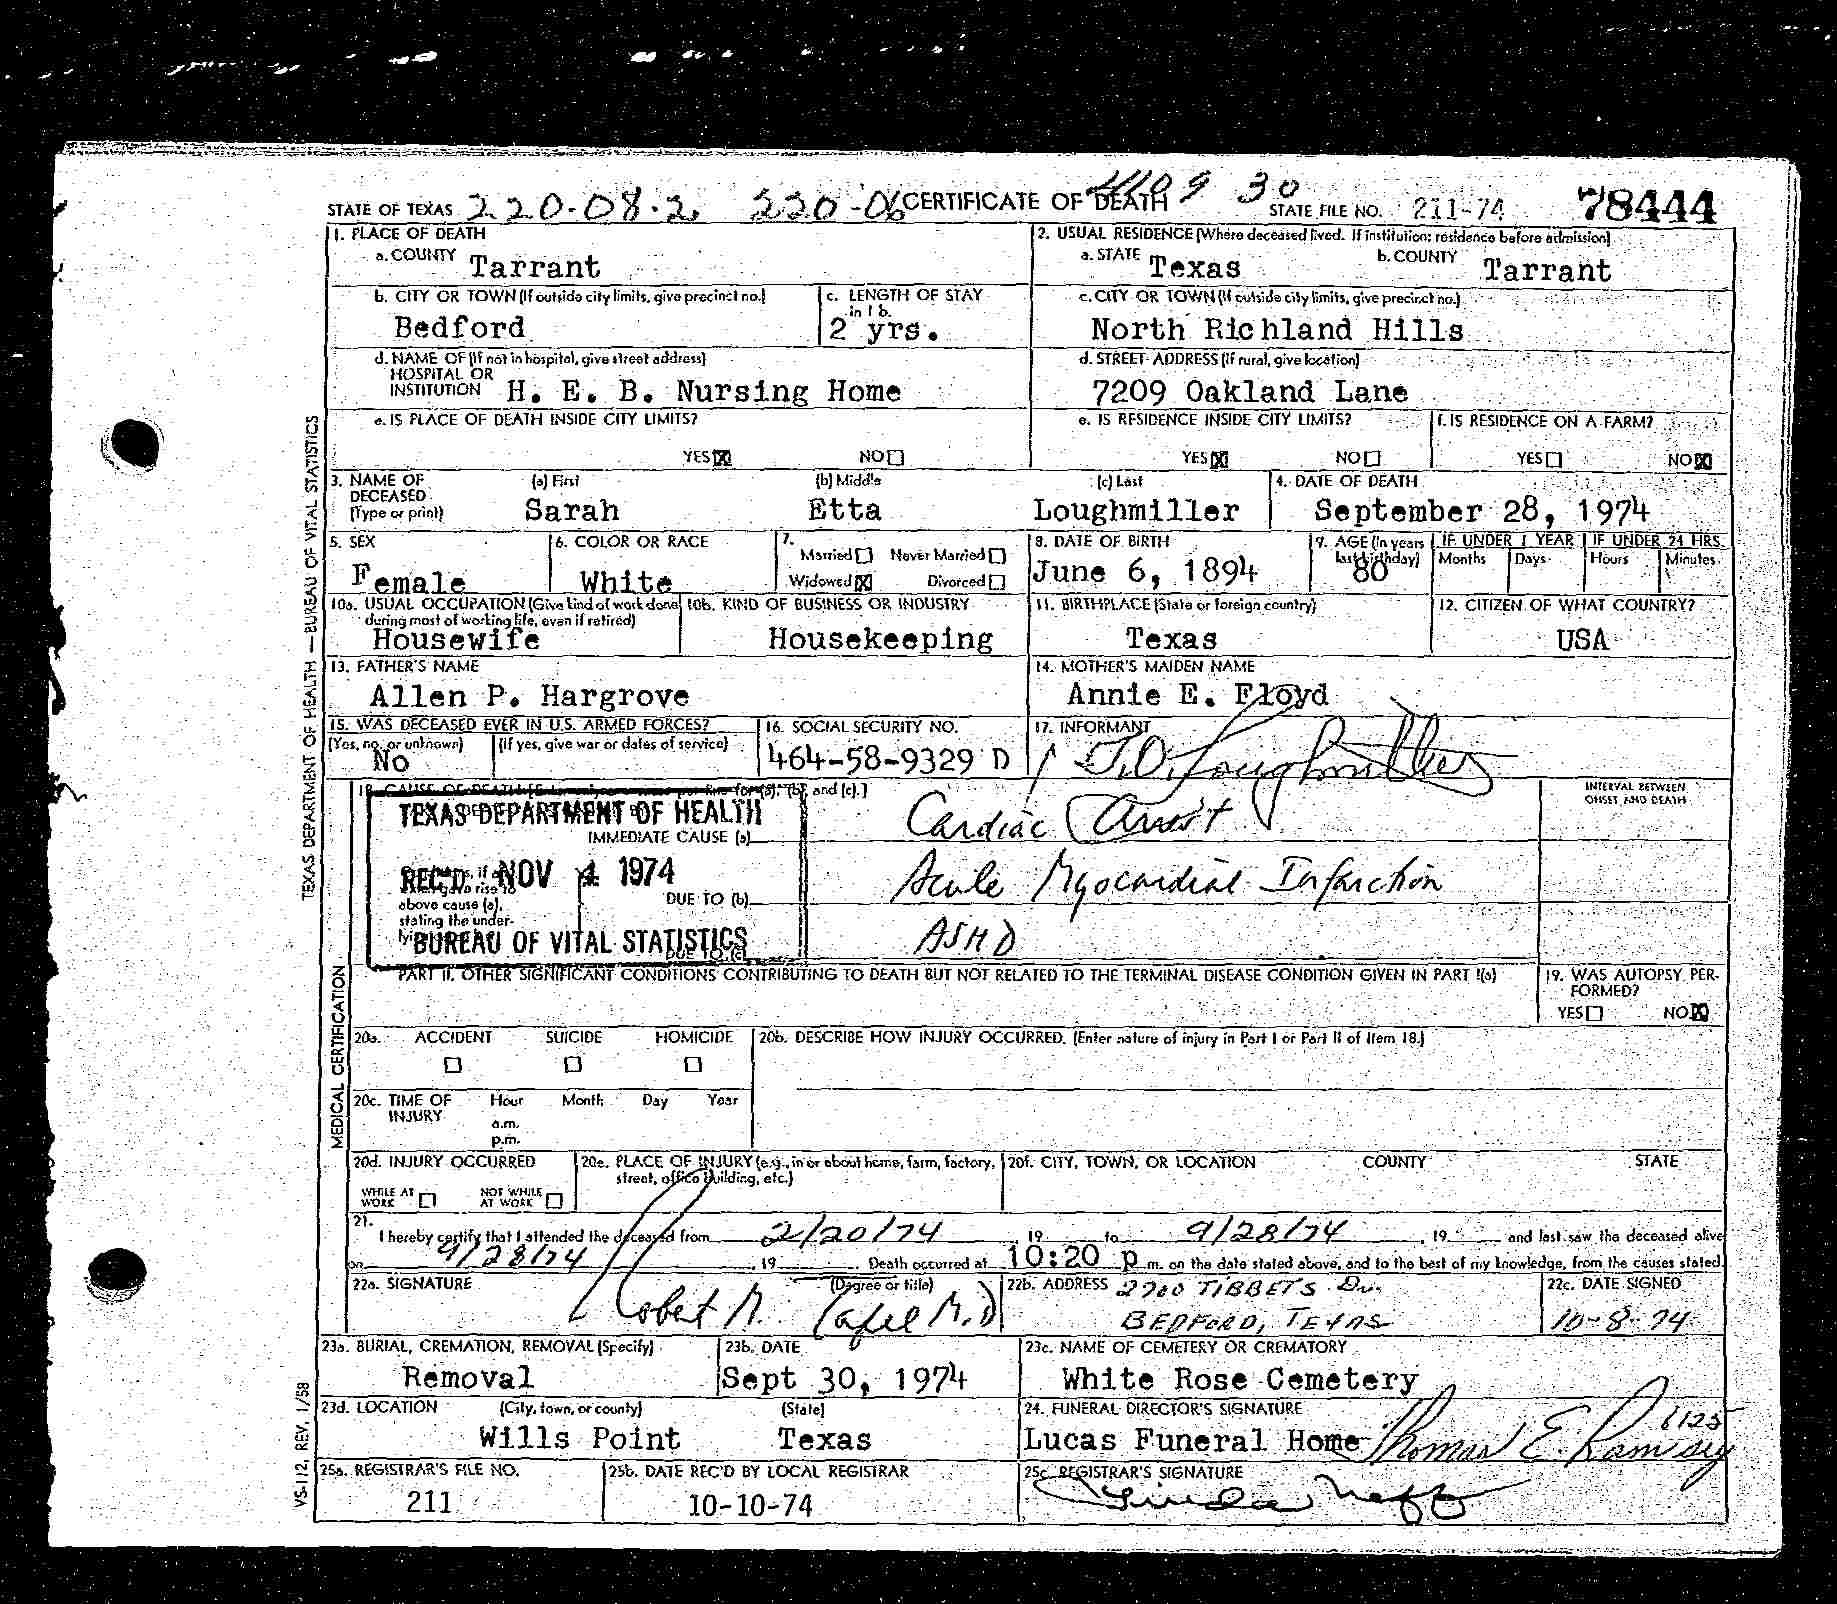 STATE OF TEXAS 220-08.2 220-06 CERTIFICATE OF DEATH 30 STATE FILE NO. 211-74 78444
1. PLACE OF DEATH
a. COUNTY Tarrant
2. USUAL RESIDENCE (Where deceased lived. If institution: residence before admission)
a. STATE Texas b. COUNTY Tarrant
b. CITY OR TOWN (If outside city limits, give precinct no.) Bedford
c. LENGTH OF STAY in 1 b. 2 yrs.
c. CITY OR TOWN (If outside city limits, give precinct no.) North Richland Hills
d. NAME OF (If not in hospital, give street address)
HOSPITAL OR
INSTITUTION H. E. B. Nursing Home
d. STREET ADDRESS (If rural, give location)
7209 Oakland Lane
e. IS PLACE OF DEATH INSIDE CITY LIMITS?
YES☒ NO☐
e. IS RESIDENCE INSIDE CITY LIMITS?
YES☒ NO☐
f. IS RESIDENCE ON A FARM?
YES☐ NO☒
3. NAME OF DECEASED (Type or print)
(a) First Sarah
(b) Middle Etta
(c) Last Loughmiller
4. DATE OF DEATH
September 28, 1974
5. SEX Female
6. COLOR OR RACE White
7. Married☐ Never Married☐
Widowed☒ Divorced☐
8. DATE OF BIRTH June 6, 1894
9. AGE (In years last birthday) 80
IF UNDER 1 YEAR Months Days
IF UNDER 24 HRS. Hours Minutes
10a. USUAL OCCUPATION (Give kind of work done during most of working life, even if retired)
Housewife
10b. KIND OF BUSINESS OR INDUSTRY
Housekeeping
11. BIRTHPLACE (State or foreign country)
Texas
12. CITIZEN OF WHAT COUNTRY?
USA
13. FATHER'S NAME
Allen P. Hargrove
14. MOTHER'S MAIDEN NAME
Annie E. Floyd
15. WAS DECEASED EVER IN U.S. ARMED FORCES?
(Yes, no, or unknown) No
(If yes, give war or dates of service)
16. SOCIAL SECURITY NO.
464-58-9329 D
17. INFORMANT
T.O. Loughmiller
18. CAUSE OF DEATH for (a), (b), and (c).]
INTERVAL BETWEEN
ONSET AND DEATH
TEXAS DEPARTMENT OF HEALTH
IMMEDIATE CAUSE (a) Cardiac Arrest
REC'D NOV 4 1974
above cause (a),
stating the under-
DUE TO (b) Acute Myocardial Infarction
BUREAU OF VITAL STATISTICS
DUE TO (c) ASHD
PART II. OTHER SIGNIFICANT CONDITIONS CONTRIBUTING TO DEATH BUT NOT RELATED TO THE TERMINAL DISEASE CONDITION GIVEN IN PART I(a)
19. WAS AUTOPSY PER-
FORMED?
YES☐ NO☒
20a. ACCIDENT SUICIDE HOMICIDE
☐ ☐ ☐
20b. DESCRIBE HOW INJURY OCCURRED. (Enter nature of injury in Part I or Part II of Item 18.)
20c. TIME OF INJURY Hour Month Day Year
a.m.
p.m.
20d. INJURY OCCURRED
WHILE AT WORK ☐ NOT WHILE AT WORK ☐
20e. PLACE OF INJURY (e.g., in or about home, farm, factory,
street, office building, etc.)
20f. CITY, TOWN, OR LOCATION COUNTY STATE
21.
I hereby certify that I attended the deceased from 2/20/74, 19 to 9/28/74, 19 and last saw the deceased alive
on 9/28/74, 19 . Death occurred at 10:20 p m. on the date stated above, and to the best of my knowledge, from the causes stated.
22a. SIGNATURE (Degree or title)
Robert M. M.D
22b. ADDRESS 2700 TIBBETS Dr.
BEDFORD, TEXAS
22c. DATE SIGNED
10-8-74
23a. BURIAL, CREMATION, REMOVAL (Specify)
Removal
23b. DATE
Sept 30, 1974
23c. NAME OF CEMETERY OR CREMATORY
White Rose Cemetery
23d. LOCATION (City, town, or county) (State)
Wills Point Texas
24. FUNERAL DIRECTOR'S SIGNATURE
Lucas Funeral Home Thomas E. Ramsey 6125
25a. REGISTRAR'S FILE NO.
211
25b. DATE REC'D BY LOCAL REGISTRAR
10-10-74
25c. REGISTRAR'S SIGNATURE
Linda Neff
TEXAS DEPARTMENT OF HEALTH — BUREAU OF VITAL STATISTICS
MEDICAL CERTIFICATION
VS-112, REV. 1/58